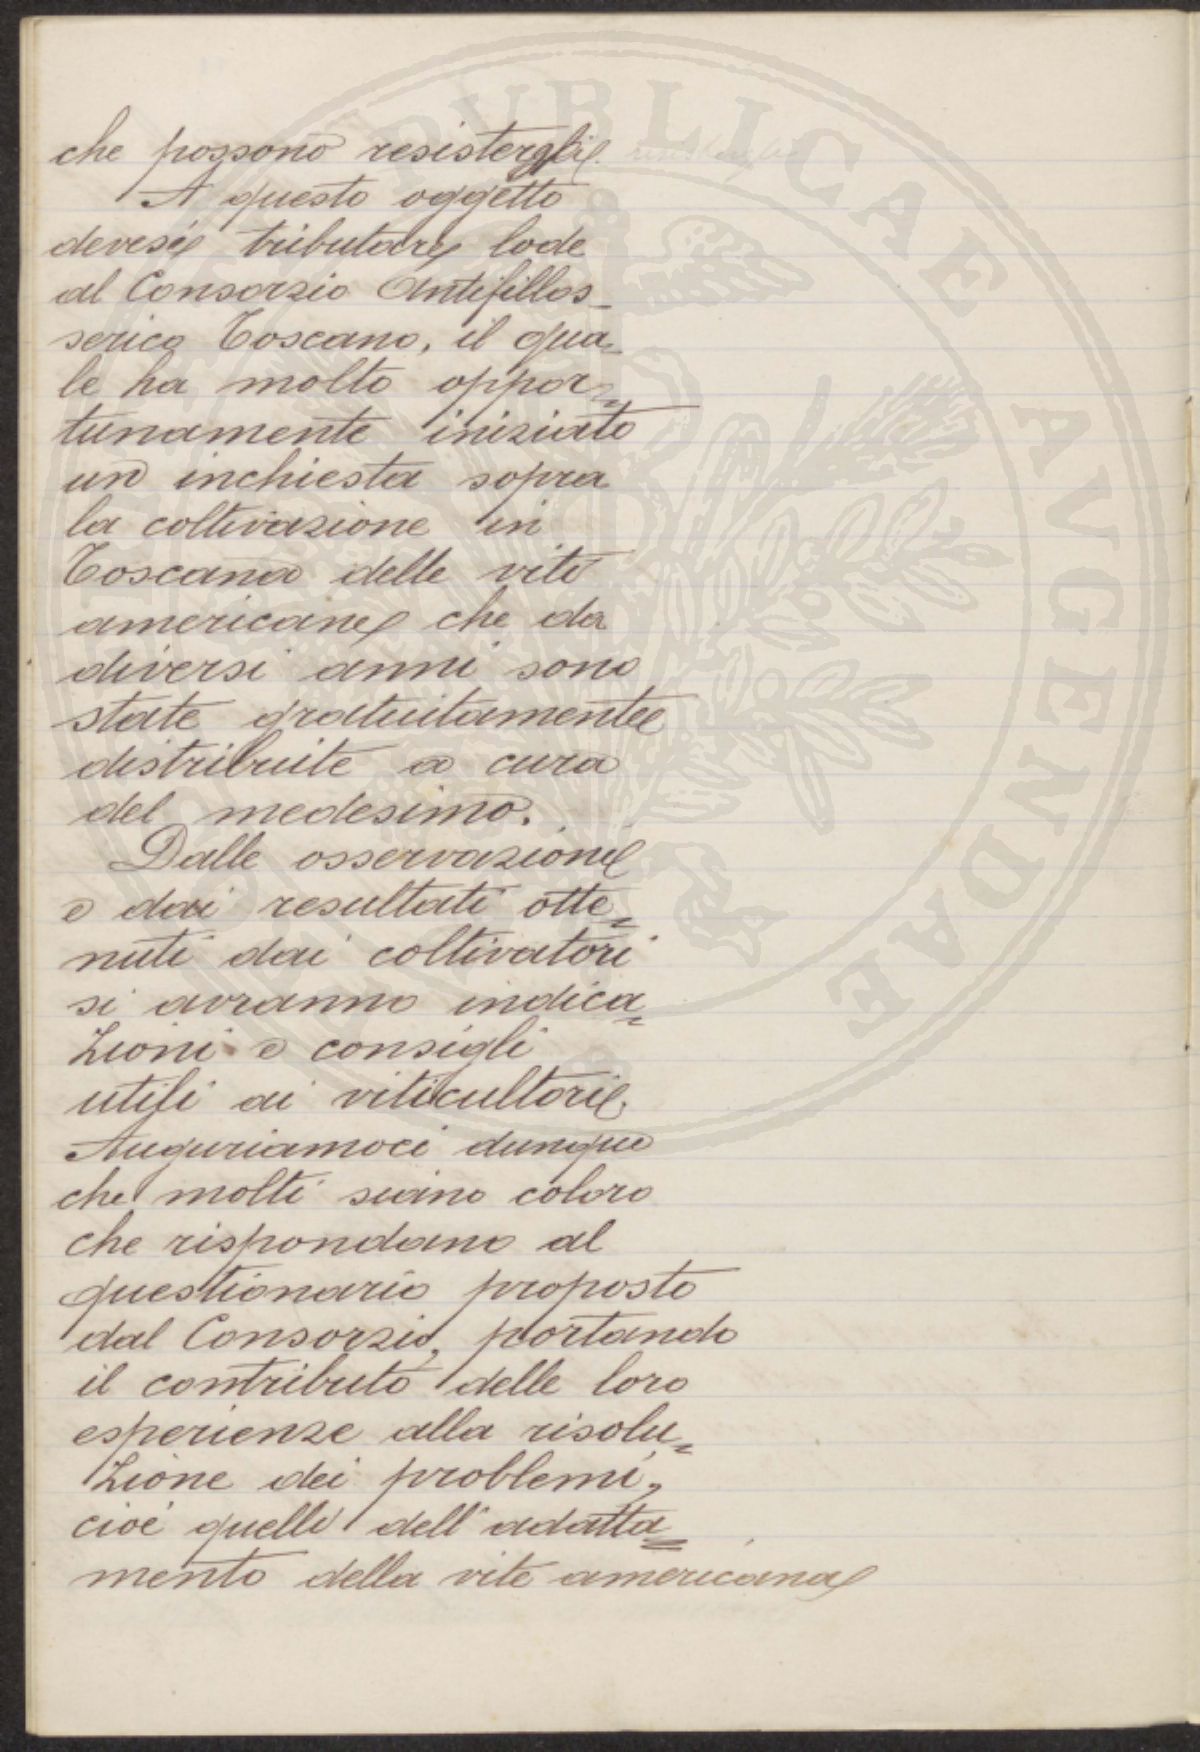 che possono resistergli.
A questo oggetto
devesi tributare lode
al Consorzio Antifillos-
serico Toscano, il qua=
le ha molto oppor=
tunamente iniziato
un inchiesta sopra
la coltivazione in
Toscana delle vite
americane che da
diversi anni sono
state gratuitamente
distribuite a cura
del medesimo.
Dalle osservazioni
e dai resultati otte=
nuti dai coltivatori
si avranno indica=
zioni e consigli
utili ai viticultori.
Auguriamoci dunque
che molti siano coloro
che rispondano al
questionario proposto
dal Consorzio, portando
il contributo delle loro
esperienze alla risolu=
zione dei problemi,
cioè quelli dell'adatta=
mento della vite americana
PUBLICAE AVGENDAE